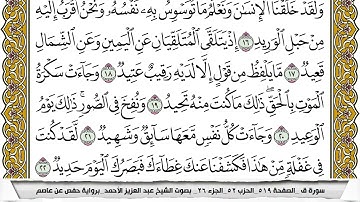 وَلَقَدْ خَلَقْنَا ٱلْإِنسَٰنَ وَنَعْلَمُ مَا تُوَسْوِسُ بِهِۦ نَفْسُهُۥ ۖ وَنَحْنُ أَقْرَبُ إِلَيْهِ
مِنْ حَبْلِ ٱلْوَرِيدِ ١٦ إِذْ يَتَلَقَّى ٱلْمُتَلَقِّيَانِ عَنِ ٱلْيَمِينِ وَعَنِ ٱلشِّمَالِ
قَعِيدٌ ١٧ مَّا يَلْفِظُ مِن قَوْلٍ إِلَّا لَدَيْهِ رَقِيبٌ عَتِيدٌ ١٨ وَجَآءَتْ سَكْرَةُ
ٱلْمَوْتِ بِٱلْحَقِّ ۖ ذَٰلِكَ مَا كُنتَ مِنْهُ تَحِيدُ ١٩ وَنُفِخَ فِى ٱلصُّورِ ۚ ذَٰلِكَ يَوْمُ
ٱلْوَعِيدِ ٢٠ وَجَآءَتْ كُلُّ نَفْسٍ مَّعَهَا سَآئِقٌ وَشَهِيدٌ ٢١ لَّقَدْ كُنتَ
فِى غَفْلَةٍ مِّنْ هَٰذَا فَكَشَفْنَا عَنكَ غِطَآءَكَ فَبَصَرُكَ ٱلْيَوْمَ حَدِيدٌ ٢٢
سورة ق _الصفحة ٥١٩_الحزب ٥٢_الجزء ٢٦_ بصوت الشيخ عبد العزيز الأحمد_برواية حفص عن عاصم